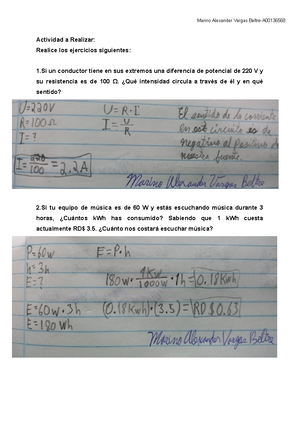 Marino Alexander Vargas Beltre-A00136568
Actividad a Realizar:
Realice los ejercicios siguientes:
1.Si un conductor tiene en sus extremos una diferencia de potencial de 220 V y
su resistencia es de 100 Ω. ¿Qué intensidad circula a través de él y en qué
sentido?
U=220V
R=100Ω
I=?
I= 220/100 = 2.2A
U=R·I
I= U/R
El sentido de la corriente
en este circulo es de
negativo al positivo de
nuestra fuente.
Marino Alexander Vargas Beltre
2.Si tu equipo de música es de 60 W y estás escuchando música durante 3
horas, ¿Cuántos kWh has consumido? Sabiendo que 1 kWh cuesta
actualmente RD$ 3.5. ¿Cuánto nos costará escuchar música?
P=60w
h=3h
E=?
E=60w·3h
E=180Wh
E=P·h
180w· 1Kw/1000w ·1h=0.18Kwh
(0.18Kwh)(3.5)=RD$0.63
Marino Alexander Vargas Beltre